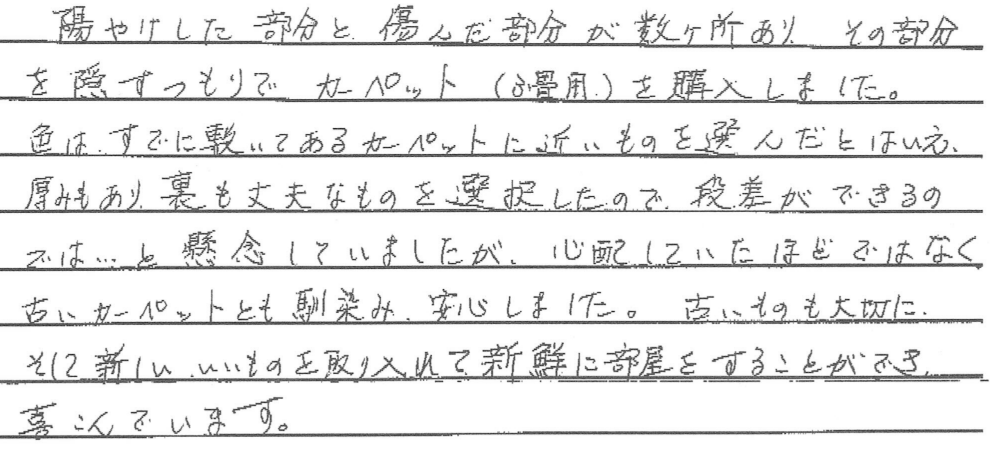 陽やけした部分と、傷んだ部分が数ヶ所あり、その部分
を隠すつもりで、カーペット(3畳用)を購入しました。
色は、すでに敷いてあるカーペットに近いものを選んだとはいえ、
厚みもあり、裏も丈夫なものを選択したので、段差ができるの
では…と懸念していましたが、心配していたほどではなく、
古いカーペットとも馴染み、安心しました。古いものも大切に、
そして新しい、いいものを取り入れて新鮮に部屋をすることができ、
喜こんでいます。